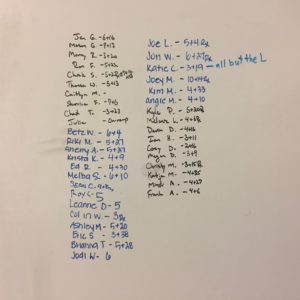 Jen G. - 6+16
Mason G. - 7+13
Manny R. - 3+20
Ron F. - 5+22
Chuck S. - 5+28
Thomas W. - 5+13
Caitlyn M. -
Shannon F. - 7+6
Chad T. - 3+27
Julie -
Betz W. - 6+4
Riki M. - 5+27
Sherry A. - 5+37
Krista K - 4+9
Ed R. - 4+30
Melba S. - 6+10
Sean C.
Roy C. 5
Leanne D - 5
Colin W. - 3 Rx
Ashley M - 5+20
Eric S - 3+38
Brianna T - 5+28
Jodi W - 6
Joe L. - 5+4 Rx
Jon W. - 6+37 Rx
Katie C - 3+19 all but the L
Joey M. - 10+14 Rx
Kim M. - 4+33
Angie M. - 4+10
Kyle P. - 5+20
Melissa L. - 4+18
Dawn D. - 4+16
Ian H. - 3+11
Corey D. - 2+16
Megan D. - 3+9
Christy M. - 3+15
Katlyn M. - 4+25
Mindi A. - 4+27
Frank A. - 4+6